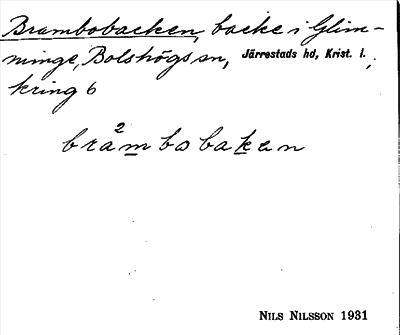 Brambobacken, backe i Glim-
minge, Bolshögs sn, Järrestads hd, Krist. l.;
kring 6
bra²mbobaken
NILS NILSSON 1931